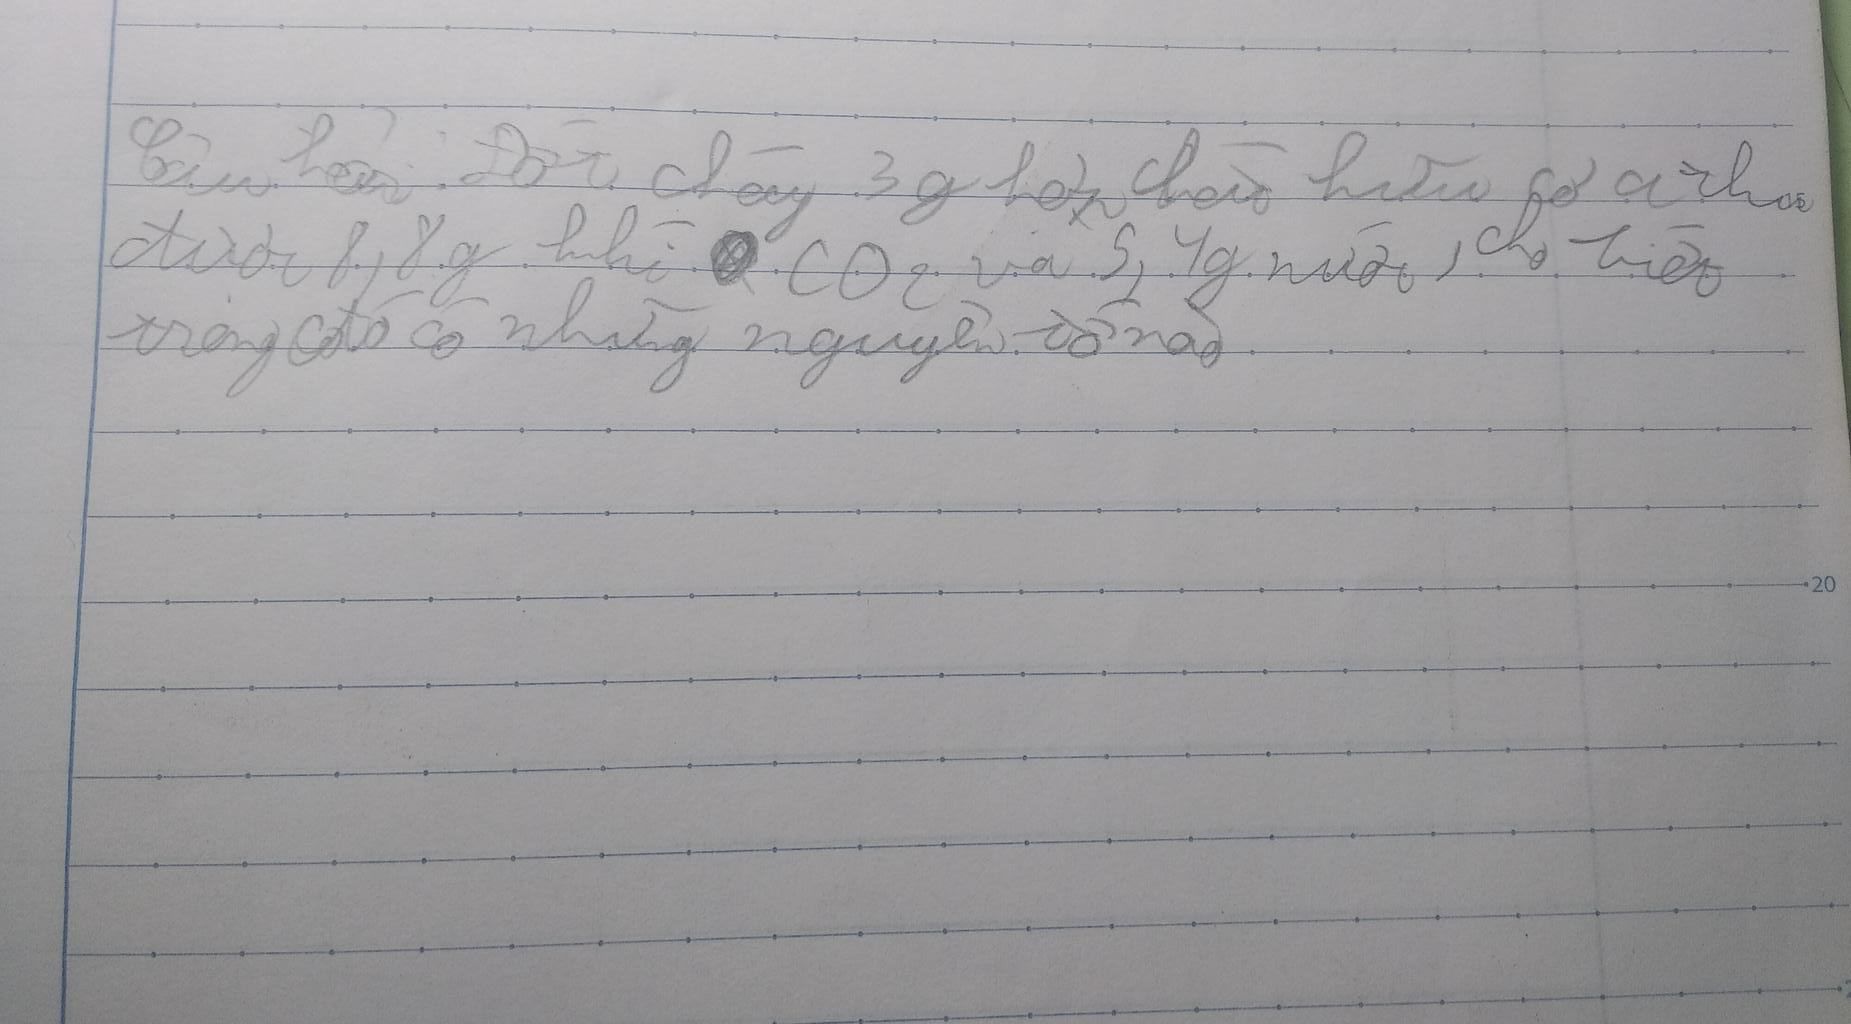 Câu hỏi: Đốt cháy 3g hợp chất hữu cơ a thu
được 8,8g khí CO2 và 5,4g nước, cho biết
trong đó có những nguyên tố nào
20